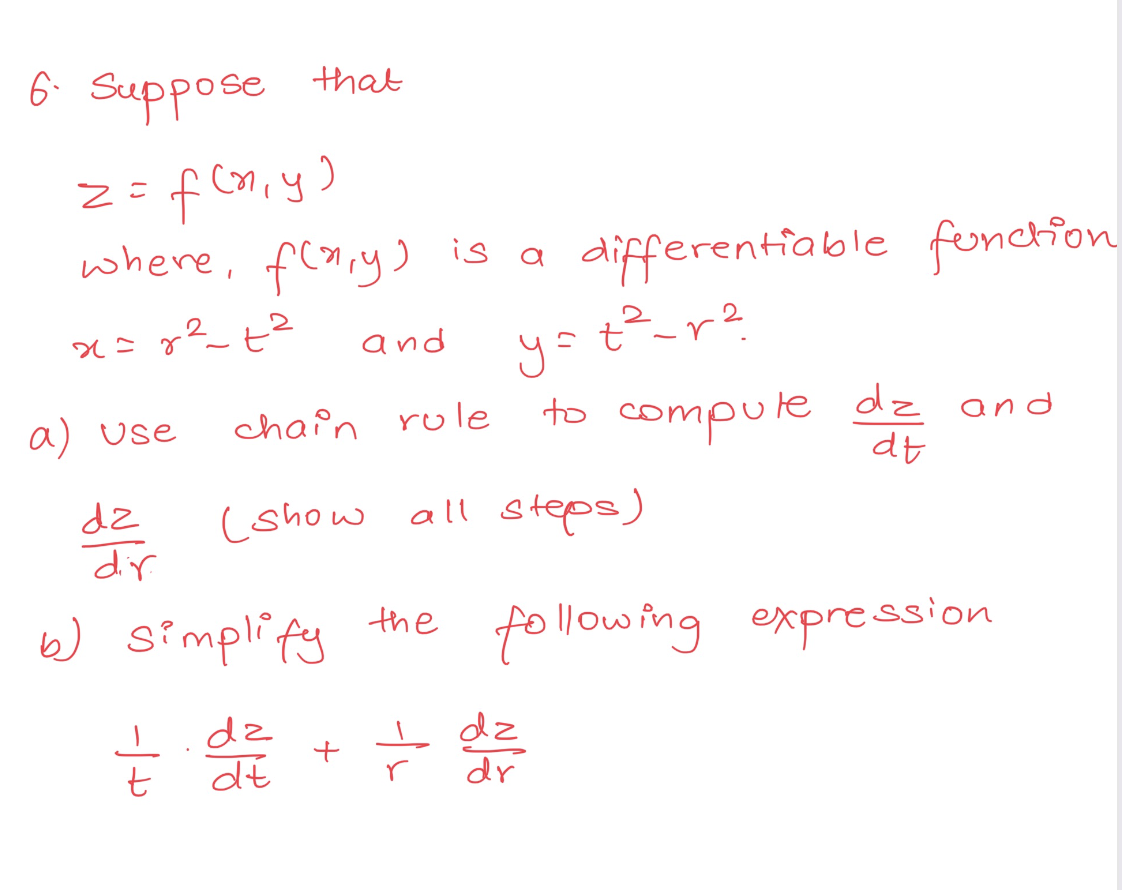 6. Suppose that
z = f(x,y)
where, f(x,y) is a differentiable function
x = r² - t² and y = t² - r².
a) Use chain rule to compute dz/dt and
dz/dr (show all steps)
b) simplify the following expression
1/t · dz/dt + 1/r dz/dr